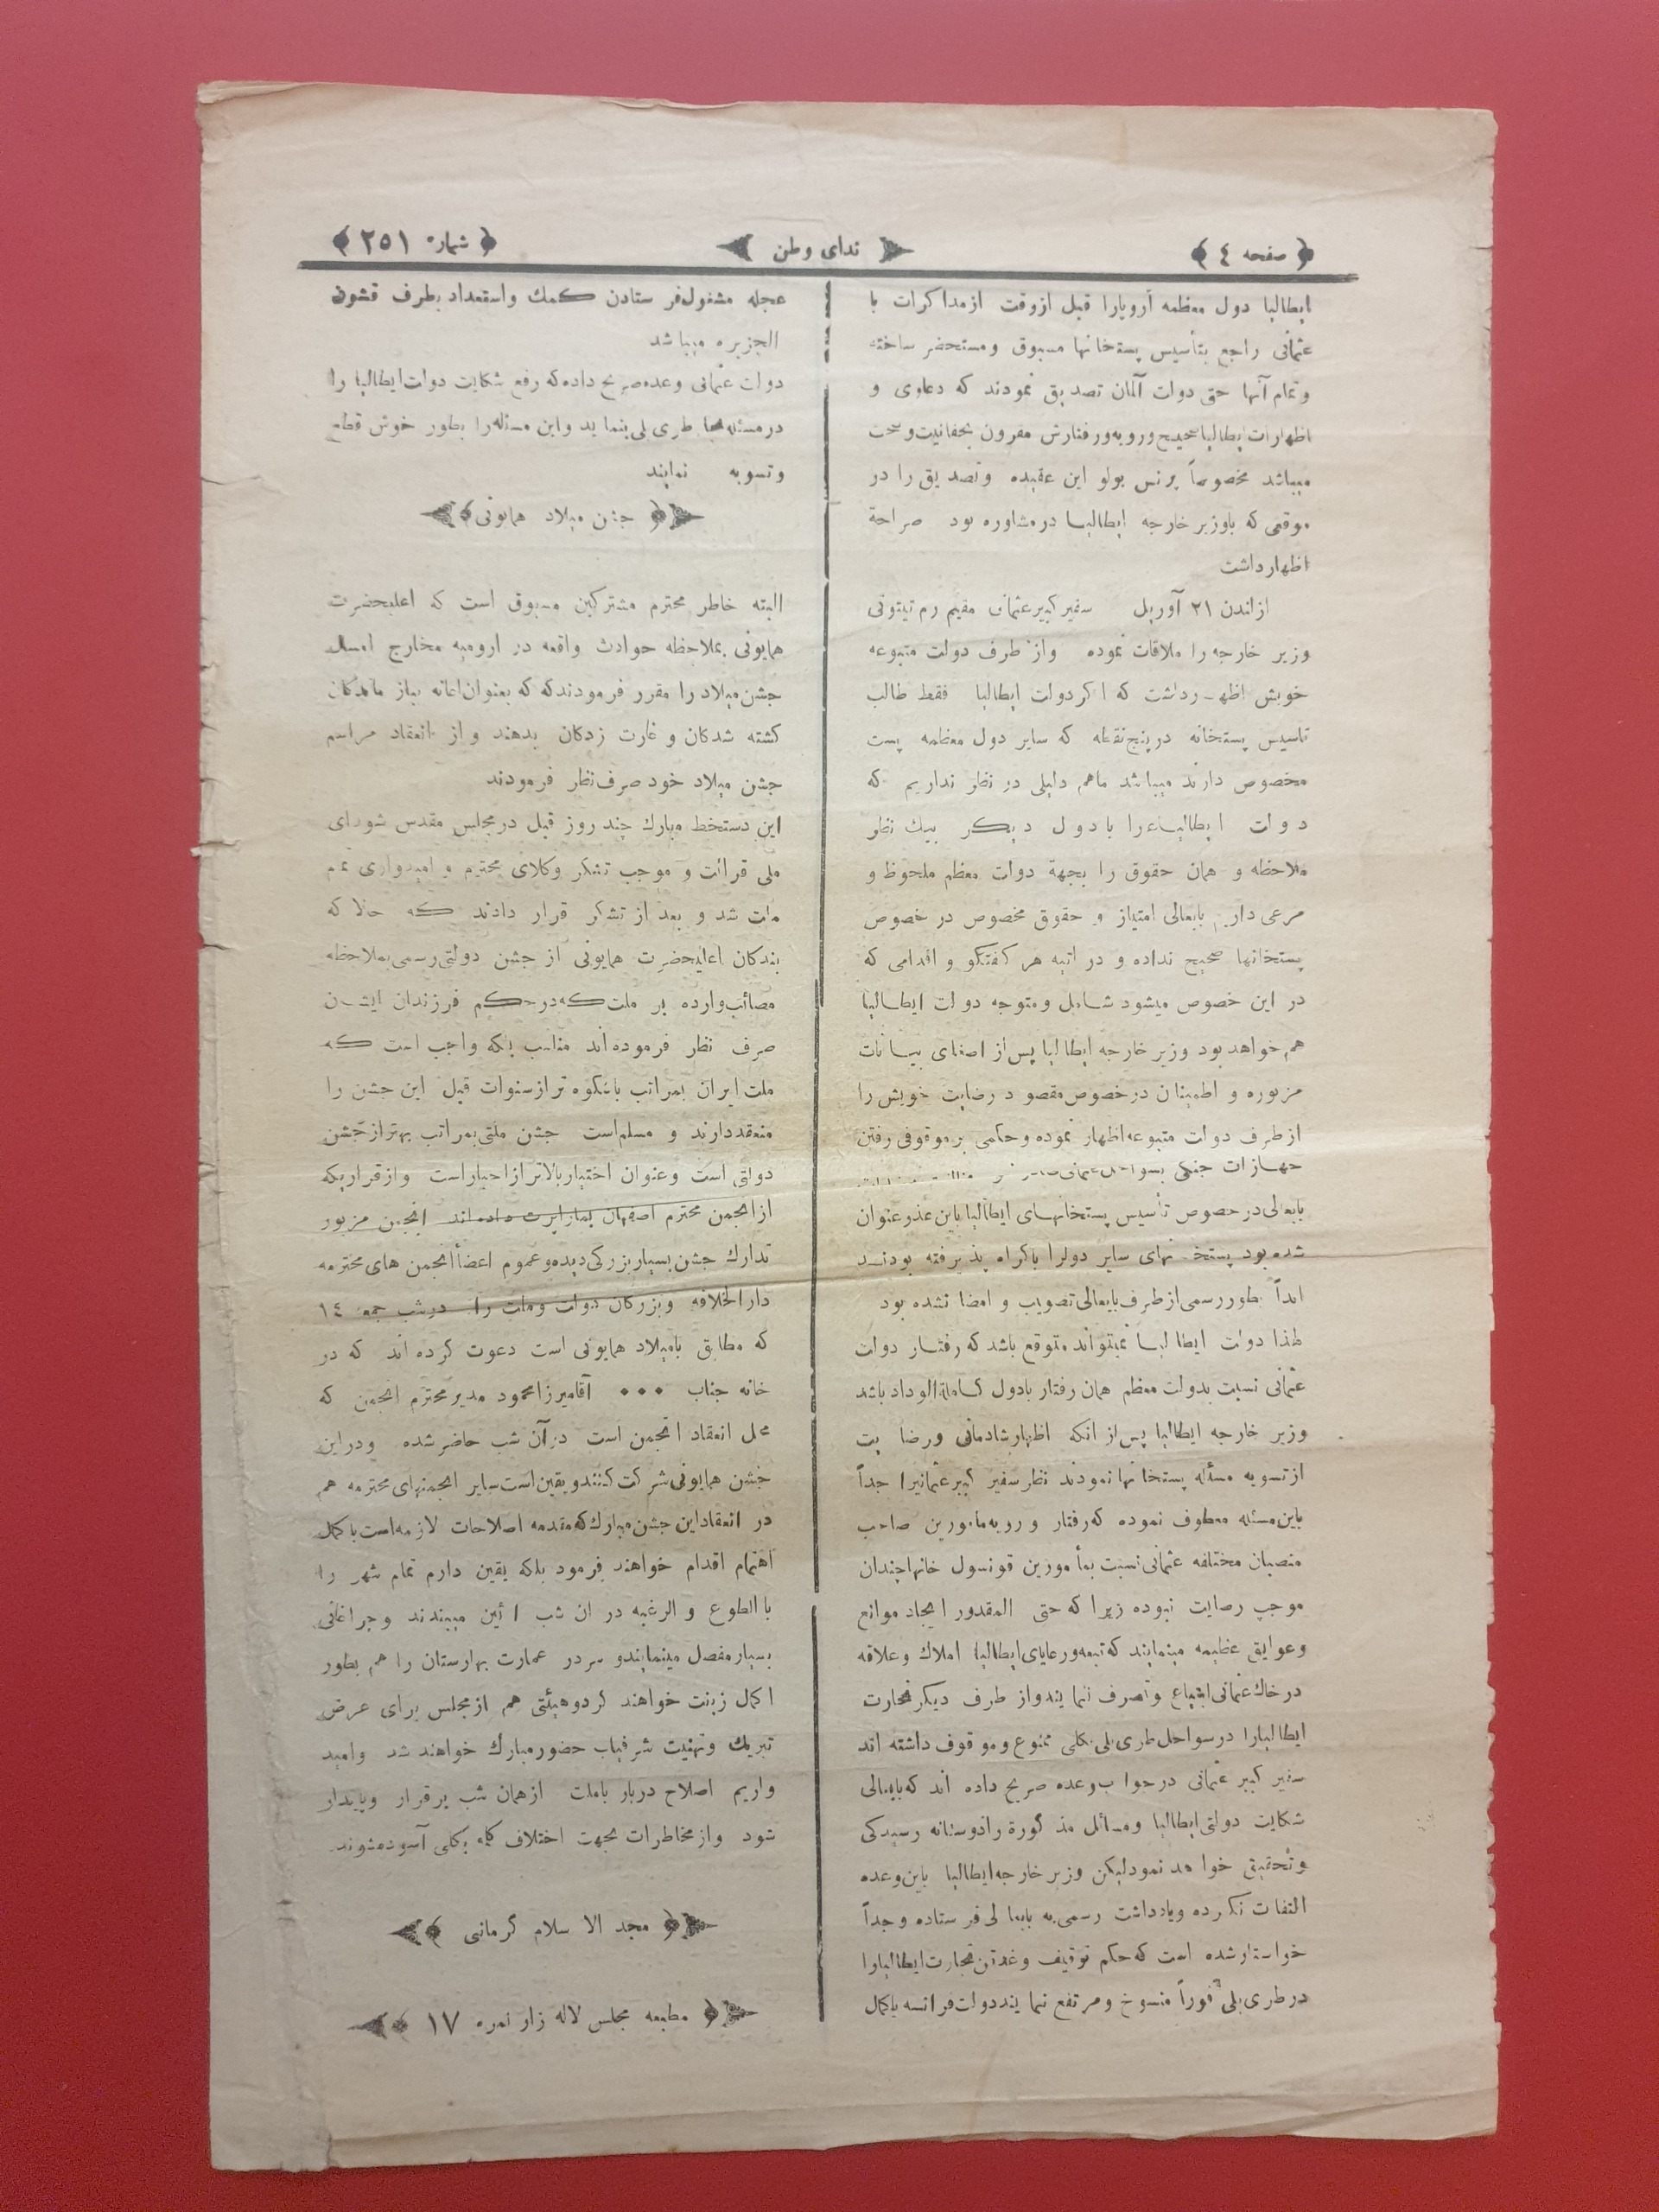 صفحه ٤
ندای وطن
شماره ٢٥١
ایطالیا دول معظمه اروپارا قبل ازوقت ازمذاکرات با
عثمانی راجع بتأسیس پستخانها مسبوق ومستحضر ساخته
وتمام آنها حق دولت آلمان تصدیق نمودند که دعاوی و
اظهارات ایطالیا صحیح ورویه ورفتارش مقرون بحقانیت وصحت
میباشد مخصوصاً پرنس بولو این عقیده وتصدیق را در
موقعی که باوزیر خارجه ایطالیا درمشاوره بود صراحة
اظهارداشت
ازلندن ٢١ آوریل سفیر کبیر عثمانی مقیم رم تیتونی
وزیر خارجه را ملاقات نموده واز طرف دولت متبوعه
خویش اظهارداشت که اکردولت ایطالیا فقط طالب
تاسیس پستخانه درپنج نقطه که سایر دول معظمه پست
مخصوص دارند میباشد ماهم دلیلی در نظر نداریم که
دولت ایطالیاءرا با دول دیکر بیک نظر
ملاحظه و همان حقوق را بجهة دولت معظم ملحوظ و
مرعی داریم بابعالی امتیاز و حقوق مخصوص در خصوص
پستخانها صحیح نداده و در اتیه هر کفتکو و اقدامی که
در این خصوص میشود شامل ومتوجه دولت ایطالیا
هم خواهد بود وزیر خارجه ایطالیا پس از اصغای بیانات
مزبوره و اطمینان درخصوص مقصود رضایت خویش را
ازطرف دولت متبوعه اظهار نموده وحکمی برموقوفی رفتن
جهازات جنکی
بابعالی درخصوص تأسیس پستخانهای ایطالیا باین عذر عنوان
شده بود پستخانهای سایر دولرا باکراه پذیرفته بودند
ابداً بطور رسمی ازطرف بابعالی تصویب و امضا نشده بود
لهذا دولت ایطالیا نمیتواند متوقع باشد که رفتار دولت
عثمانی نسبت بدولت معظم همان رفتار بادول کاملةالوداد باشد
وزیر خارجه ایطالیا پس از انکه اظهار شادمانی ورضایت
ازتسویه مسأله پستخانها نمودند نظر سفیر کبیر عثمانیرا جداً
باین مسئله معطوف نموده که رفتار و رویه مامورین صاحب
منصبان مختلفه عثمانی نسبت بمأمورین قونسول خانها چندان
موجب رضایت نبوده زیرا که حتی المقدور ایجاد موانع
وعوایق عظیمه مینمایند که تبعه ورعایای ایطالیا املاک وعلاقه
درخاک عثمانی ابتیاع وتصرف نمایند واز طرف دیکر تجارت
ایطالیارا درسواحل طری پلی بکلی ممنوع وموقوف داشته اند
سفیر کبیر عثمانی درجواب وعده صریح داده اند که بابعالی
شکایت دولتی ایطالیا ومسائل مذکورة رادوستانه رسیدکی
وتحقیق خواهد نمود لیکن وزیر خارجه ایطالیا باین وعده
التفات نکرده ویادداشت رسمی به بابعالی فرستاده وجداً
خواستار شده است که حکم توقیف وغدقن تجارت ایطالیارا
درطری پلی فوراً منسوخ ومرتفع نمایند دولت فرانسه باکمال
عجله مشغول فرستادن کمک واستعداد بطرف قشون
الجزیره میباشد
دولت عثمانی وعده صریح داده که رفع شکایت دولت ایطالیا را
درمسئله طری پلی بنماید واین مسئله را بطور خوش قطع
وتسویه نمایند
جشن میلاد همایونی
البته خاطر محترم مشترکین مسبوق است که اعلیحضرت
همایونی بملاحظه حوادث واقعه در ارومیه مخارج امسال
جشن میلاد را مقرر فرمودند که که بعنوان اعانه بباز ماندکان
کشته شدکان و غارت زدکان بدهند و از انعقاد مراسم
جشن میلاد خود صرف نظر فرمودند
این دستخط مبارک چند روز قبل درمجلس مقدس شورای
ملی قرائت و موجب تشکر وکلای محترم و امیدواری تمام
ملت شد و بعد از تشکر قرار دادند که حالا که
بندکان اعلیحضرت همایونی از جشن دولتی رسمی بملاحظه
مصائب وارده بر ملت که درحکم فرزندان ایشان
صرف نظر فرموده اند مناسب بلکه واجب است که
ملت ایران بمراتب باشکوه تر از سنوات قبل این جشن را
منعقد دارند و مسلم است جشن ملتی بمراتب بهتر از جشن
دولتی است وعنوان اختیار بالاتر از اجبار است واز قراریکه
از انجمن محترم اصفهان بما راپرت داده اند انجمن مزبور
تدارک جشن بسیار بزرکی دیده و عموم اعضأ انجمن های محترمه
دارالخلافه وبزرکان دولت وملت را درشب جمعه ١٤
که مطابق بامیلاد همایونی است دعوت کرده اند که در
خانه جناب ٠٠٠ آقامیرزا محمود مدیر محترم انجمن که
محل انعقاد انجمن است درآن شب حاضر شده ودراین
جشن همایونی شرکت کنند ویقین است سایر انجمنهای محترمه هم
در انعقاد این جشن مبارک که مقدمه اصلاحات لازمه است باکمال
اهتمام اقدام خواهند فرمود بلکه یقین دارم تمام شهر را
با الطوع و الرغبه در ان شب ائین میبندند وچراغانی
بسیار مفصل مینمایند و سر در عمارت بهارستان را هم بطور
اکمل زینت خواهند کرد وهیئتی هم از مجلس برای عرض
تبریک وتهنیت شرفیاب حضور مبارک خواهند شد وامید
واریم اصلاح دربار باملت ازهمان شب برقرار وپایدار
شود واز مخاطرات بجهت اختلاف کلمه بکلی آسوده شوند
مجد الا سلام کرمانی
مطبعه مجلس لاله زار نمره ١٧